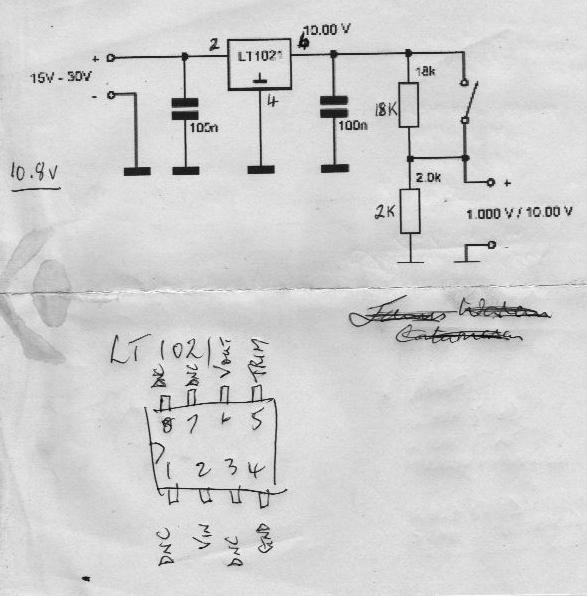 10.00 V
2
6
+
LT1021
15V - 30V
18k
-
4
18K
100n
100n
10.8V
2.0k
+
2K
1.000 V / 10.00 V
-
LT 1021
DNC DNC VOUT TRIM
8 7 6 5
1 2 3 4
DNC VIN DNC GND